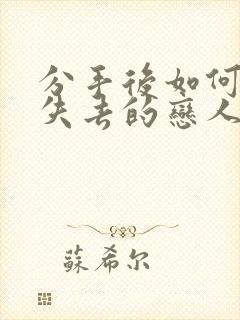 分手後如何
失去的戀人
蘇希尔